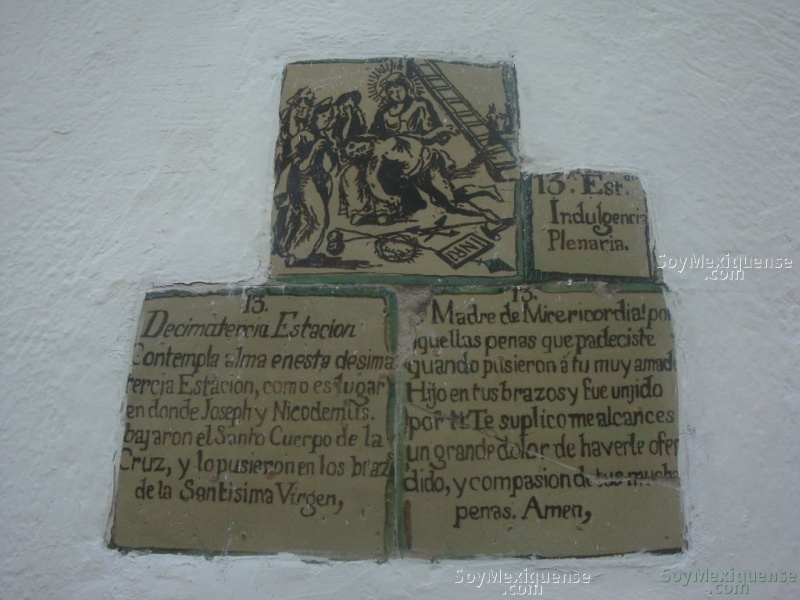 INRI
13.ª Estⁿ
Indulgencia
Plenaria.
13.
Decimatercia Estacion
Contempla alma en esta desima
tercia Estacion, como es lugar
en donde Joseph y Nicodemus.
bajaron el Santo Cuerpo de la
Cruz, y lo pusieron en los braz
de la Santisima Virgen,
13.
Madre de Micericordia! por
aquellas penas que padeciste
quando pusieron á tu muy amado
Hijo en tus brazos y fue unjido
por ti. Te suplico me alcances
un grande dolor de haverle ofen
dido, y compasion de tus mucha
penas. Amen,
SoyMexiquense
.com
SoyMexiquense
.com
SoyMexiquense
.com